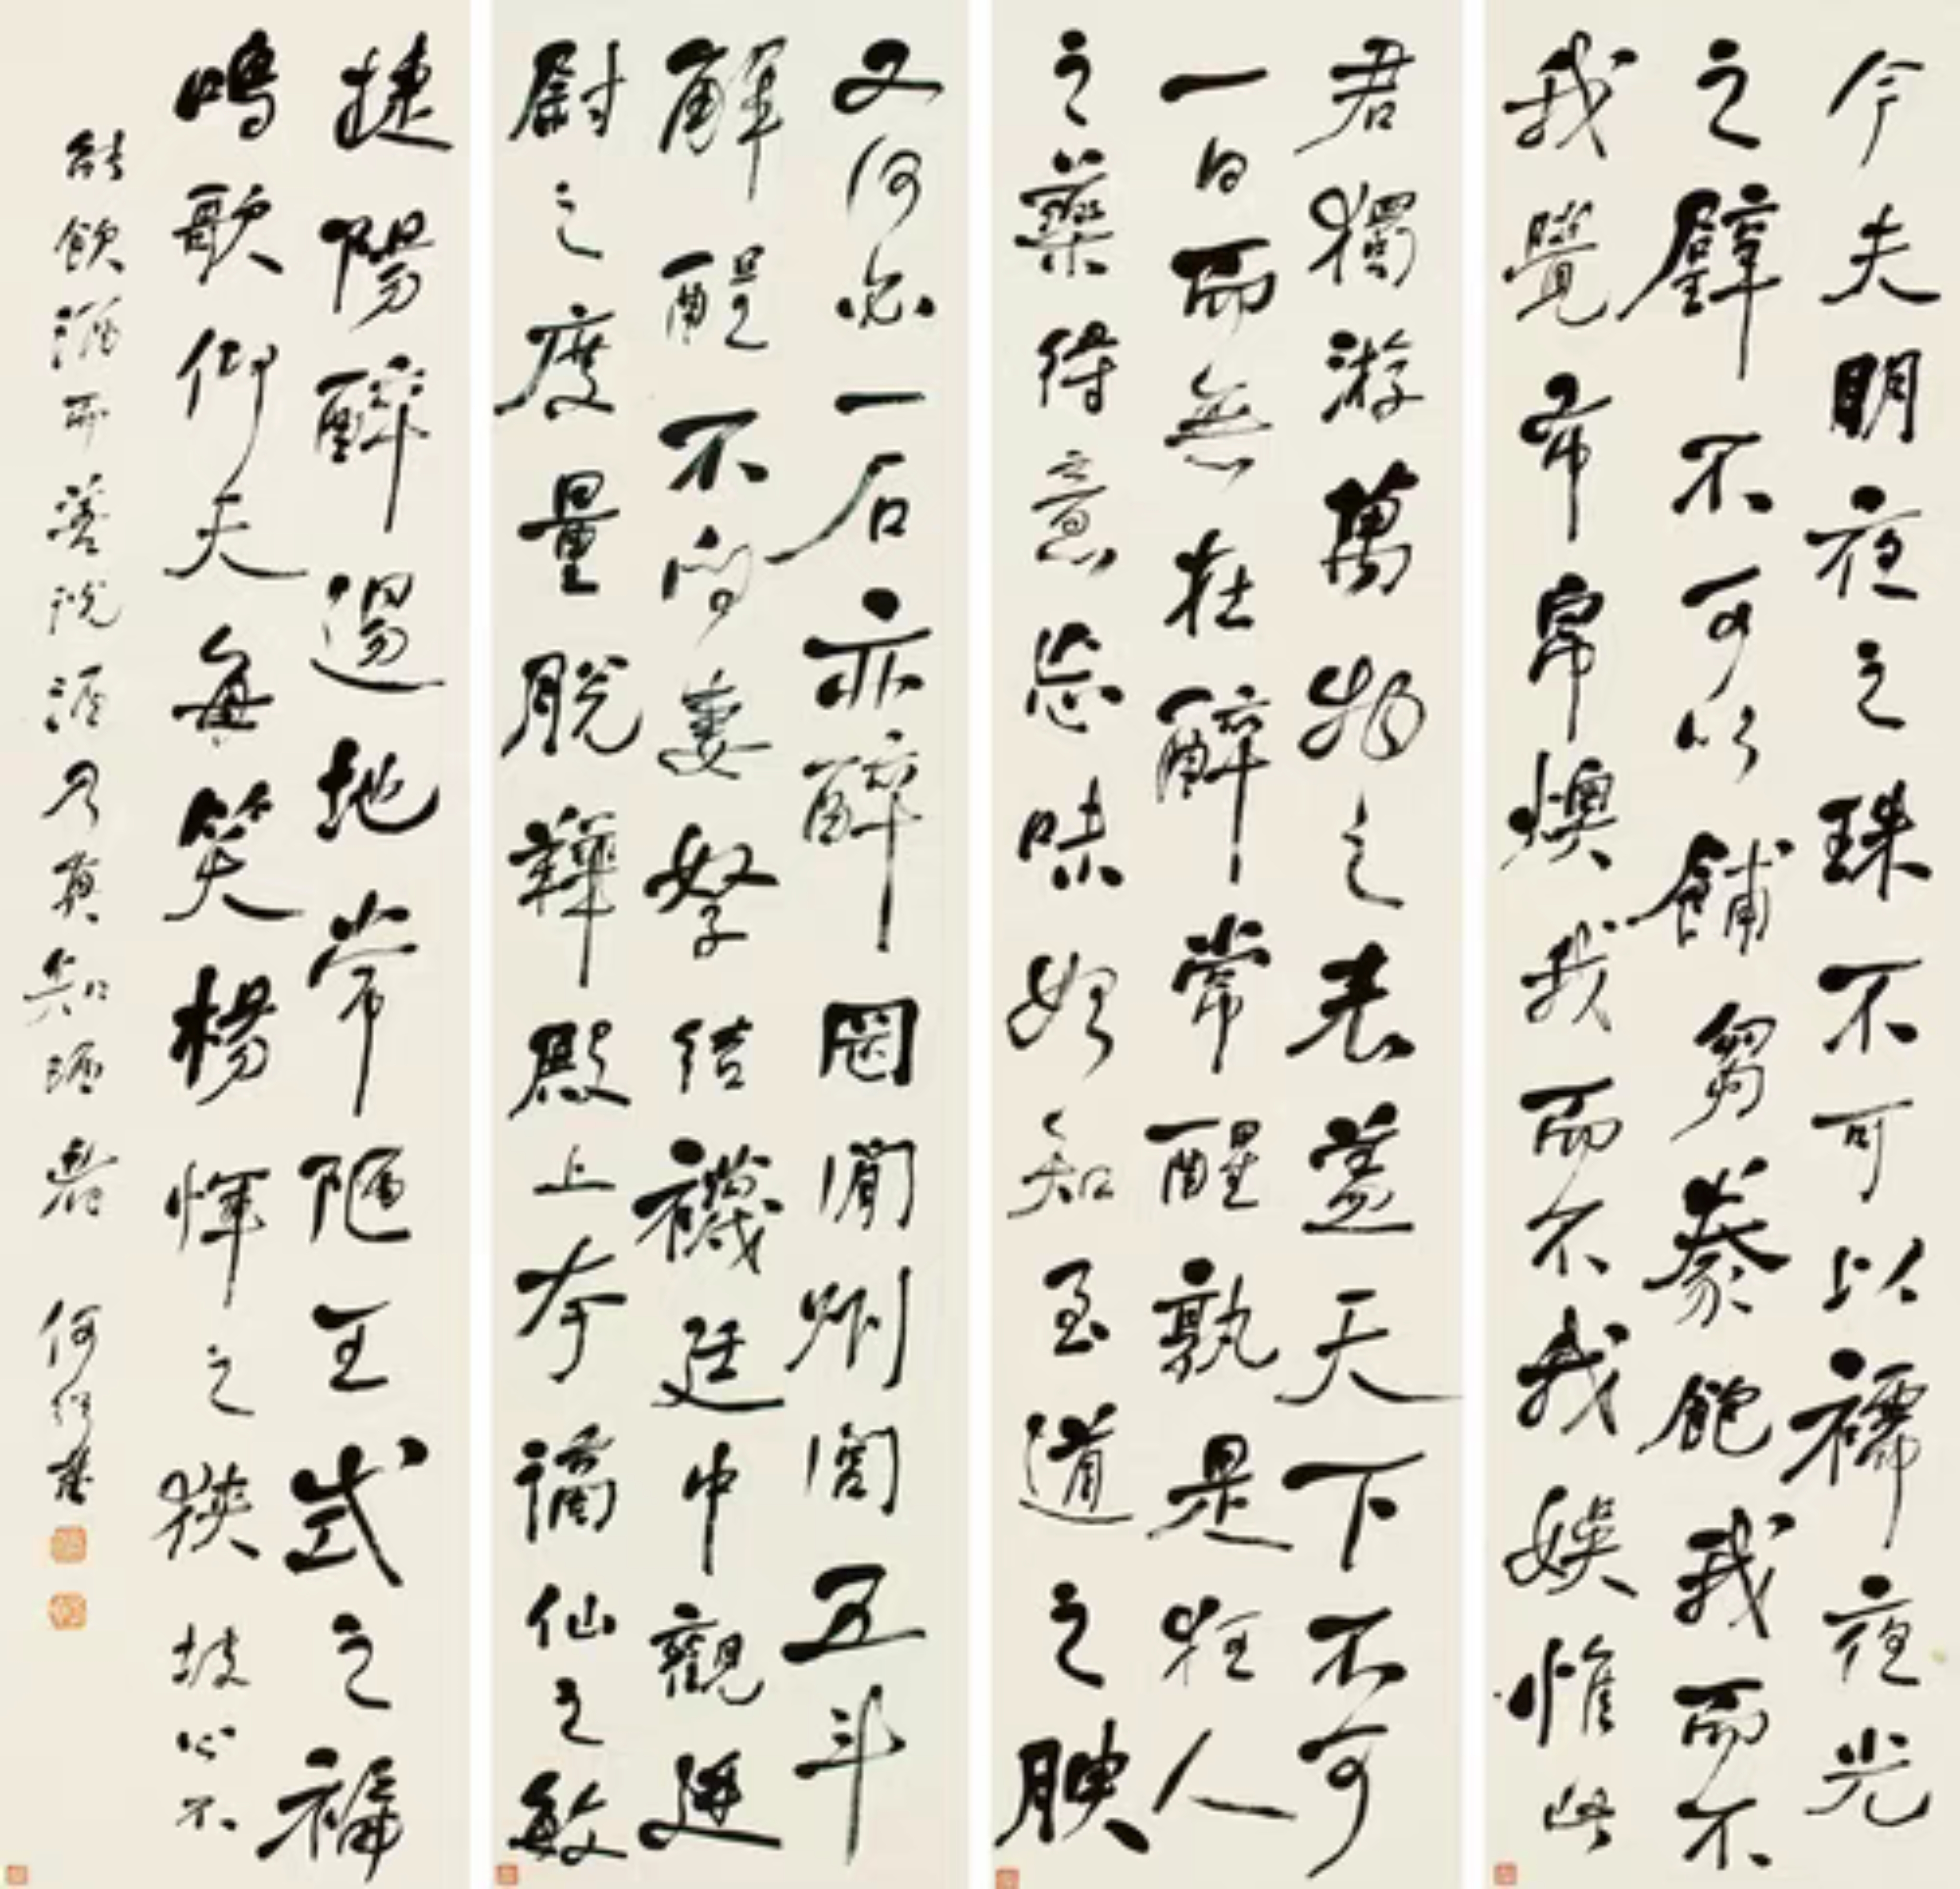 今夫明月之珠不可以襦夜光
之璧不可以餔芻豢飽我而不
我覺布帛燠我而不我娛惟此
君獨游萬物之表蓋天下不可
一日而無在醉常醒孰是狂人
之藥得意忘味始知至道之腴
又何必一石亦醉罔閒州閭五斗
解酲不問妻孥結襪廷中觀廷
尉之度量脫鞾殿上夸謫仙之敏
捷陽醉逷地常陋王式之褊
鳴歌仰天每笑楊惲之狹 坡公不
能飲酒而善說酒乃真知酒者 何紹基